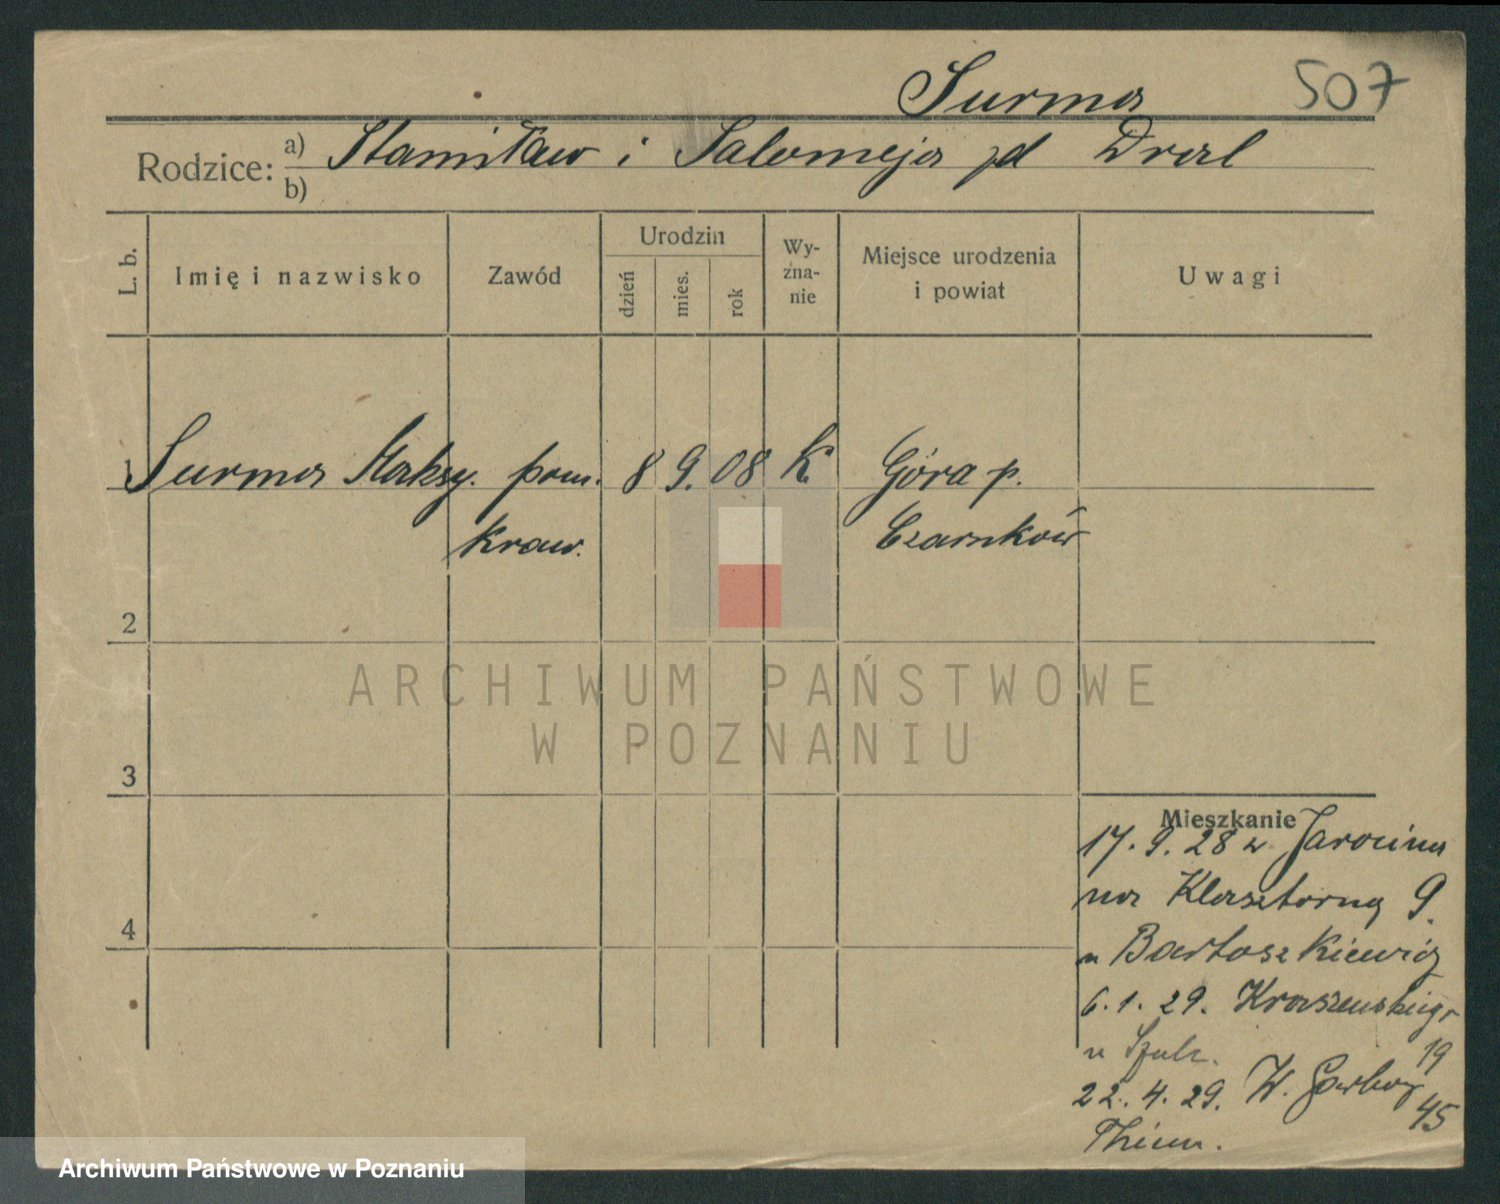 Surma 507
Rodzice: a) Stanisław i Salomeja zd Dral
b)
L. b. Imię i nazwisko Zawód Urodzin dzień mies. rok Wy-zna-nie Miejsce urodzenia i powiat Uwagi
1 Surma Maksy. pom. 8 9. 08 K. Góra p.
kraw. Czarnków
2
ARCHIWUM PAŃSTWOWE
W POZNANIU
3
Mieszkanie
17. 9. 28 z Jarocina
na Klasztorną 9.
u Bartoszkiewicz
4
6. 1. 29. Kraszewskiego 19
u Szulc.
22. 4. 29. W. Garbary 45
Thiem.
Archiwum Państwowe w Poznaniu